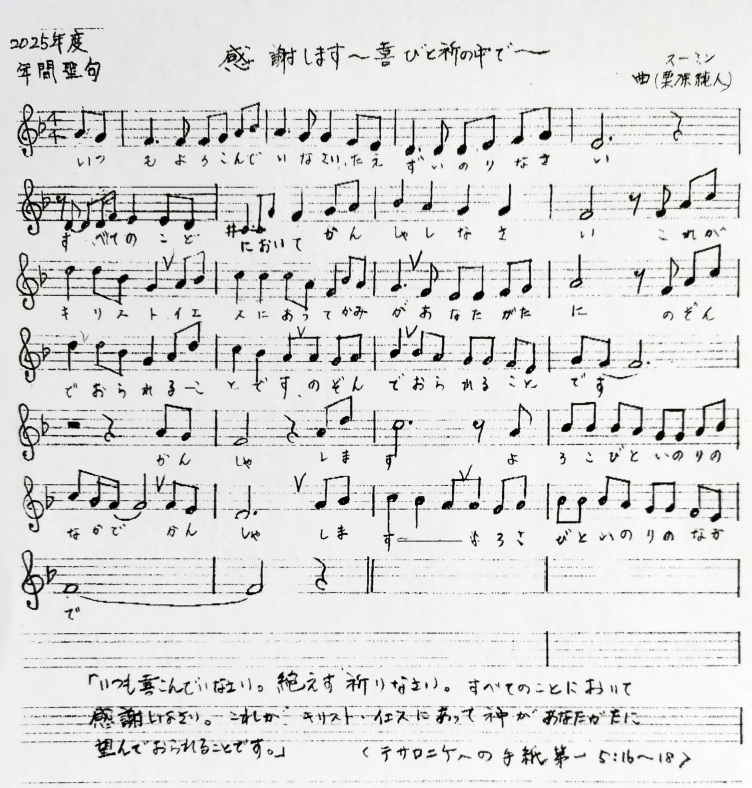 2025年度
年間聖句
感謝します〜喜びと祈の中で〜
スーミン
曲(栗原純人)
いつ もよろこんで いなさい、たえ ずいのりなさ い
すべてのこと において かん しゃしなさ い これが
キリストイエ スにあってかみ があなたがた に のぞん
でおられるこ とです、のぞん でおられること です
かん しゃ しま す よ ろこびといのりの
なかで かん しゃ しま す よろこ びといのりのなか
で
「いつも喜こんでいなさい。絶えず祈りなさい。すべてのことにおいて
感謝しなさい。これが、キリスト・イエスにあって神があなたがたに
望んでおられることです。」 〈テサロニケへの手紙第一 5:16〜18〉